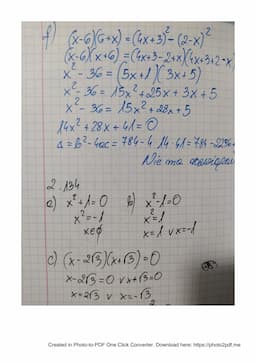 f) (x-6)(6+x) = (4x+3)² - (2-x)²
(x-6)(x+6) = (4x+3-2+x)(4x+3+2-x)
x² - 36 = (5x+1)(3x+5)
x² - 36 = 15x² + 25x + 3x + 5
x² - 36 = 15x² + 28x + 5
14x² + 28x + 41 = 0
Δ = b² - 4ac = 784 - 4·14·41 = 784 - 2296
Nie ma
2.134
a) x² + 1 = 0 b) x² - 1 = 0
x² = -1 x² = 1
x∈∅ x = 1 ∨ x = -1
c) (x - 2√3)(x + √3) = 0
x - 2√3 = 0 ∨ x + √3 = 0
x = 2√3 ∨ x = -√3
Created in Photo-to-PDF One Click Converter. Download here: https://photo2pdf.me